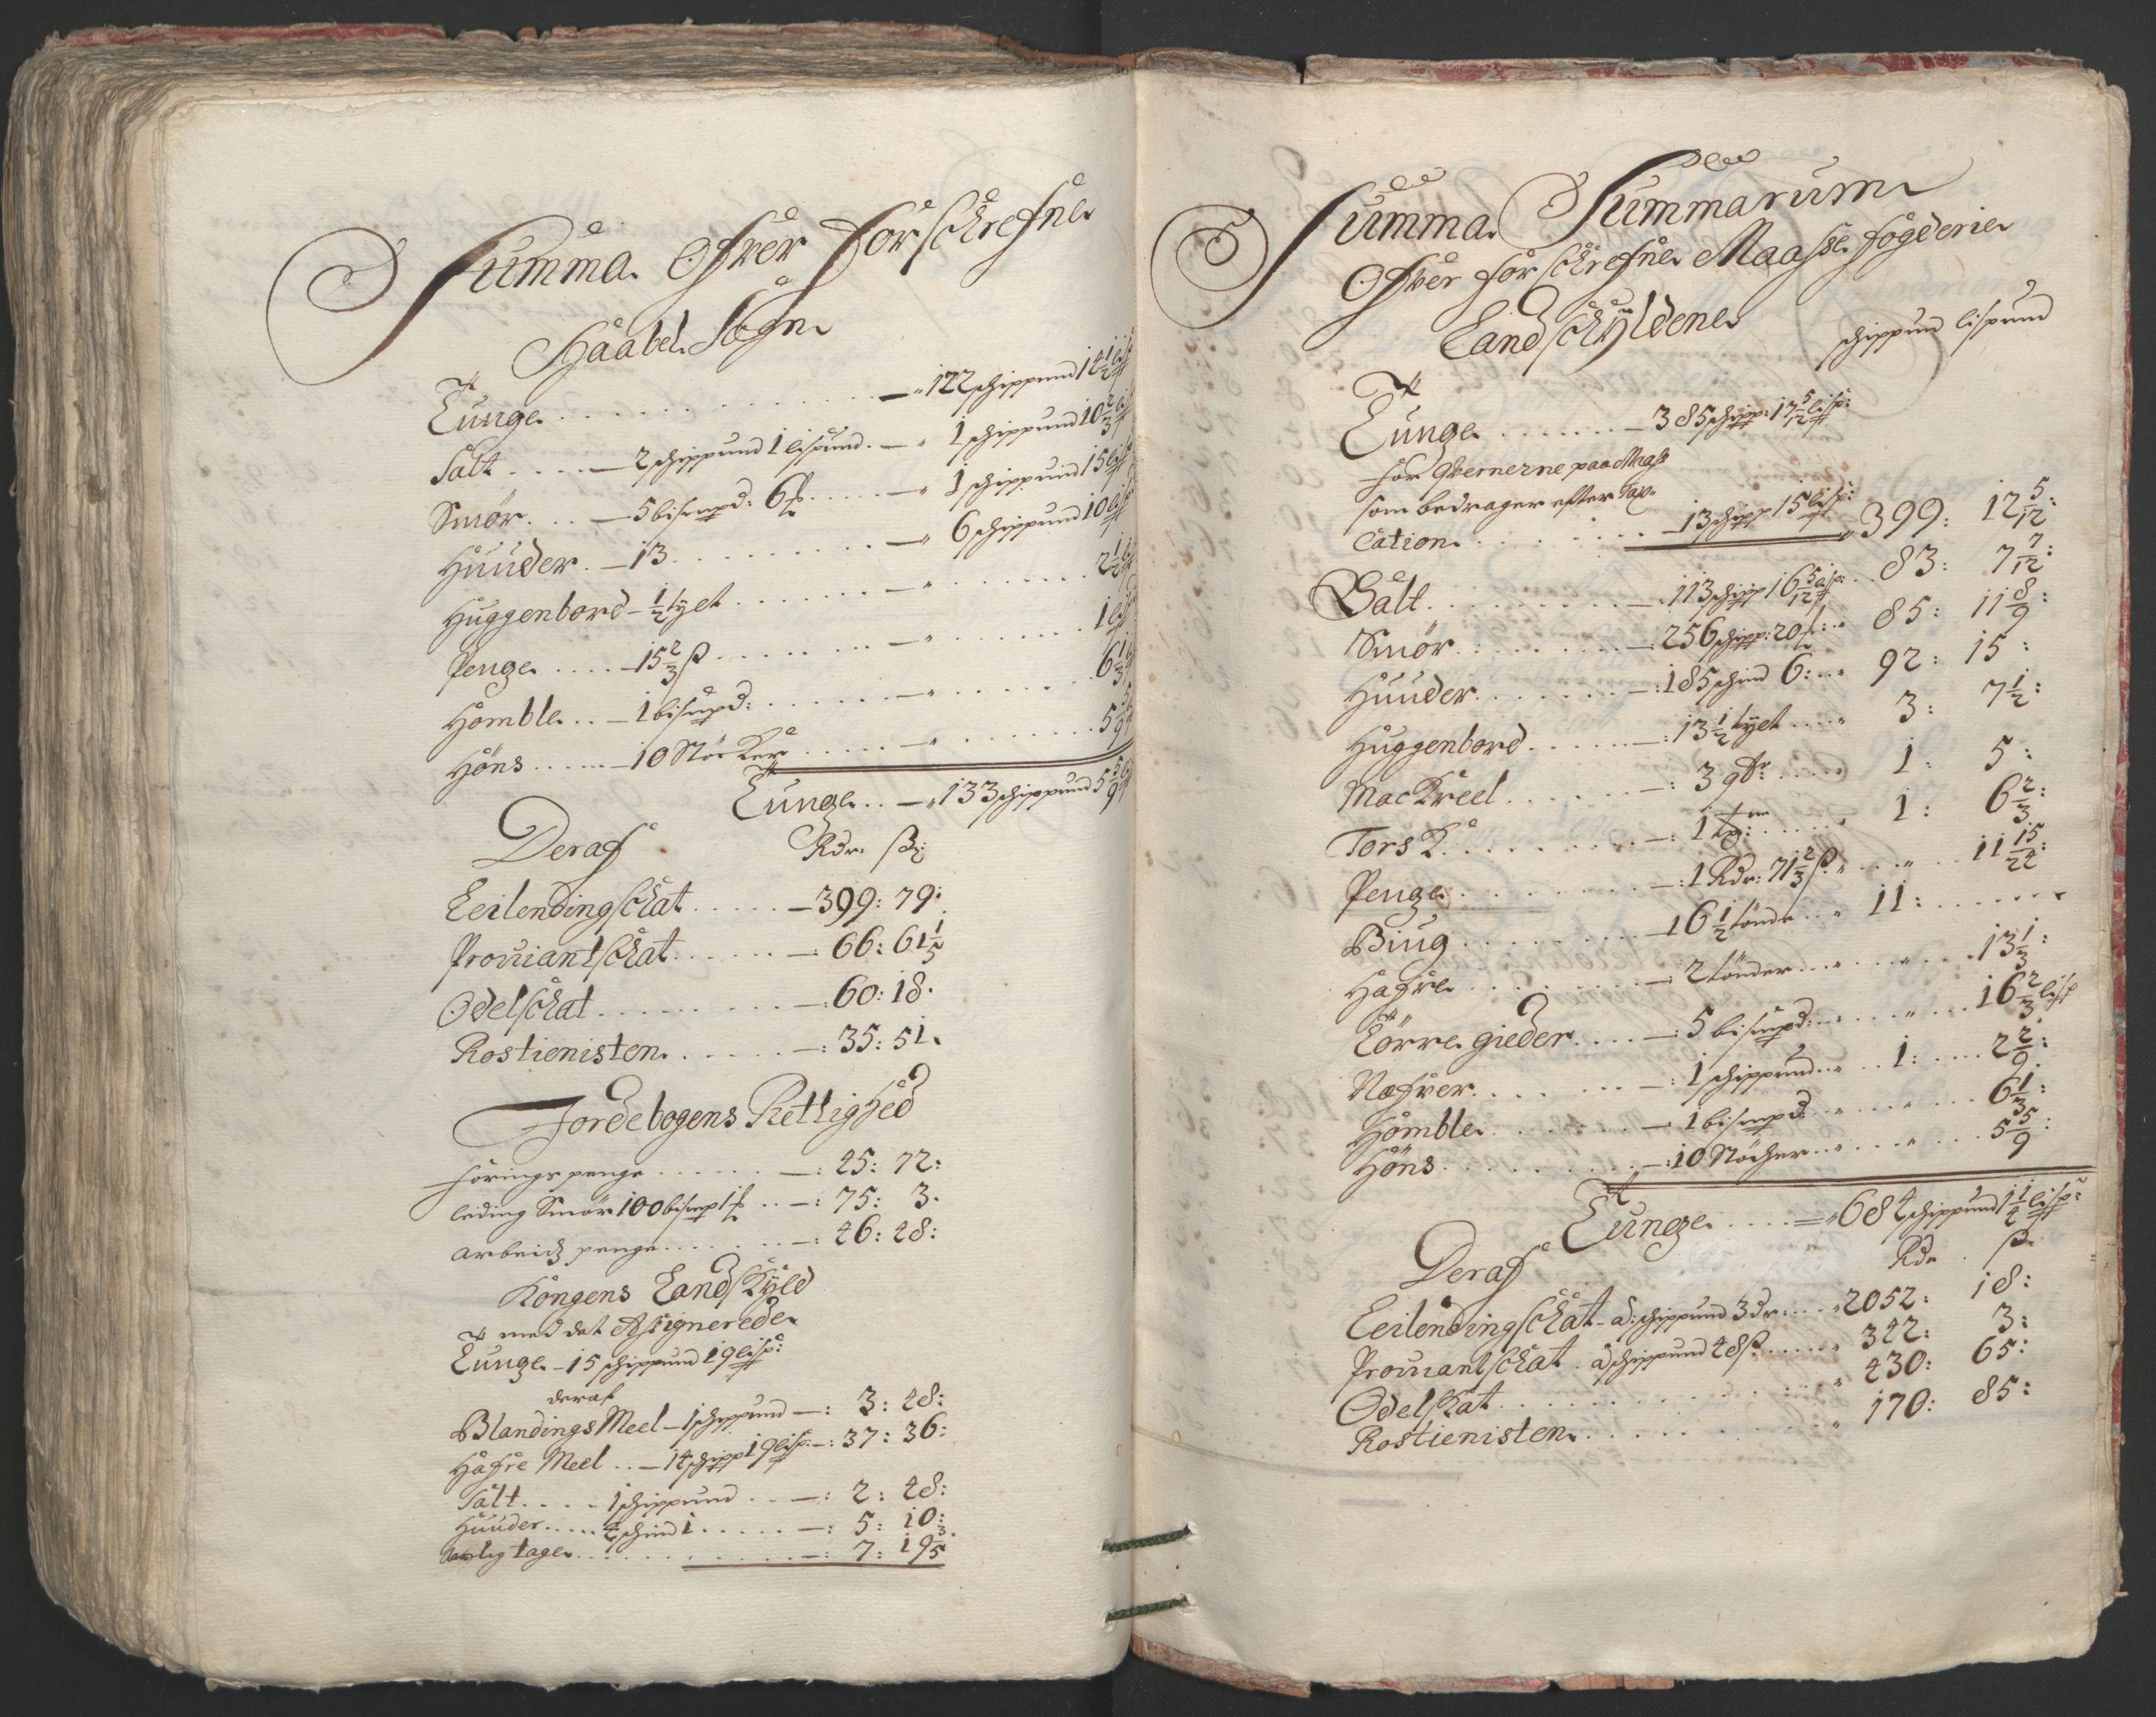 Summa Ofver Forschrefne
Haabel Sogn
Tunge . . . . — 122 schippund 14 1/2 lisp
Salt . . . . — 2 schippund 1 lispund. — 1 schippund 10 2/3 lisp
Smör . . . — 5 bismpd: 6 . . . . — 1 schippund 15 lisp
Huuder . — 13 . . . . — 6 schippund 10 lisp
Huggenbord — 1/2 tyet . . . . — 2 1/2
Penge . . . . — 15 2/3 ß . . . . — 1 lisp
Homble . . — 1 bismpd: . . . . — 6 1/3
Höns . . . . — 10 Stöcker . . . . — 5 5/9
Tunge . . — 133 schippund 5 5/9
Deraf Rdr. ß:
Leilendingschat . . . . — 399: 79:
Proviantschat . . . . — 66: 61 1/5
Odelschat . . . . — 60: 18.
Rostienisten . . . . — 35: 51.
Jordebogens Rettighed
foringspenge . . . . —: 45: 72:
leding Smör 100 bismp 1 . . —: 75: 3.
arbeidz penge . . . . —: 46: 48:
Kongens Landskyld
med det Assignerede
Tunge — 15 schippund 19 lisp:
deraf
Blandings Meel — 1 schippund —: 3: 48:
Hafre Meel . . — 14 schipp 19 lisp: —: 37: 36:
Salt . . . . 1 schippund . . —: 2: 48:
Huuder . . . . 4 schind 1 . . . . —: 5: 10:
tage . . . . —: 7: 19 3/5
Summa Summarum
Ofver forschrefne Maasse fögderie
Landschyldene
schippund lispund
Tunge . . . . — 385 schipp: 17 5/12 lisp:
for Qvernerne paa Mass
som bedrager efter Tax-
ation . . . . — 13 schipp 15 lisp: 399: 12 5/12:
Salt . . . . —: 113 schipp 16 5/12 lisp: . . 83: 7 7/12:
Smör . . . . — 256 schipp: 20 : . . 85: 11 8/9:
Huuder . . . . —: 185 schind 6: . . 92: 15:
Huggenbord . . . . —: 13 1/2 tyet . . . . 3: 7 1/2:
Mackreel . . . . —: 3 . . . . 1: 5:
Torsk . . . . —: 1 . . . . 1: 6 2/3:
Penge . . . . —: 1 Rdr: 71 2/3 ß . . . . 11 15/24:
Biug . . . . — 16 1/2 tönde . . 11: . . . .
Hafre . . . . — 2 tönder . . . . 13 1/3:
Törre gieder . . . . —: 5 bismpd: . . . . 16 2/3 lisp
Næfver . . . . —: 1 schippund . . 1: . . 2 2/9:
Homble . . . . — 1 bismpd . . . . 6 1/3:
Höns . . . . —: 10 Stöcher . . . . 5 5/9:
Tunge . . . . 684 schippund 1 1/4 lisp:
Deraf Rdr. ß
Leilendingschat — a: schippund 3 dr: . . . . 2052: 18:
Proviantschat . a schippund 48 ß . . . . 342: 3:
Odelskat . . . . 430: 65:
Rostienisten . . . . 170: 85: